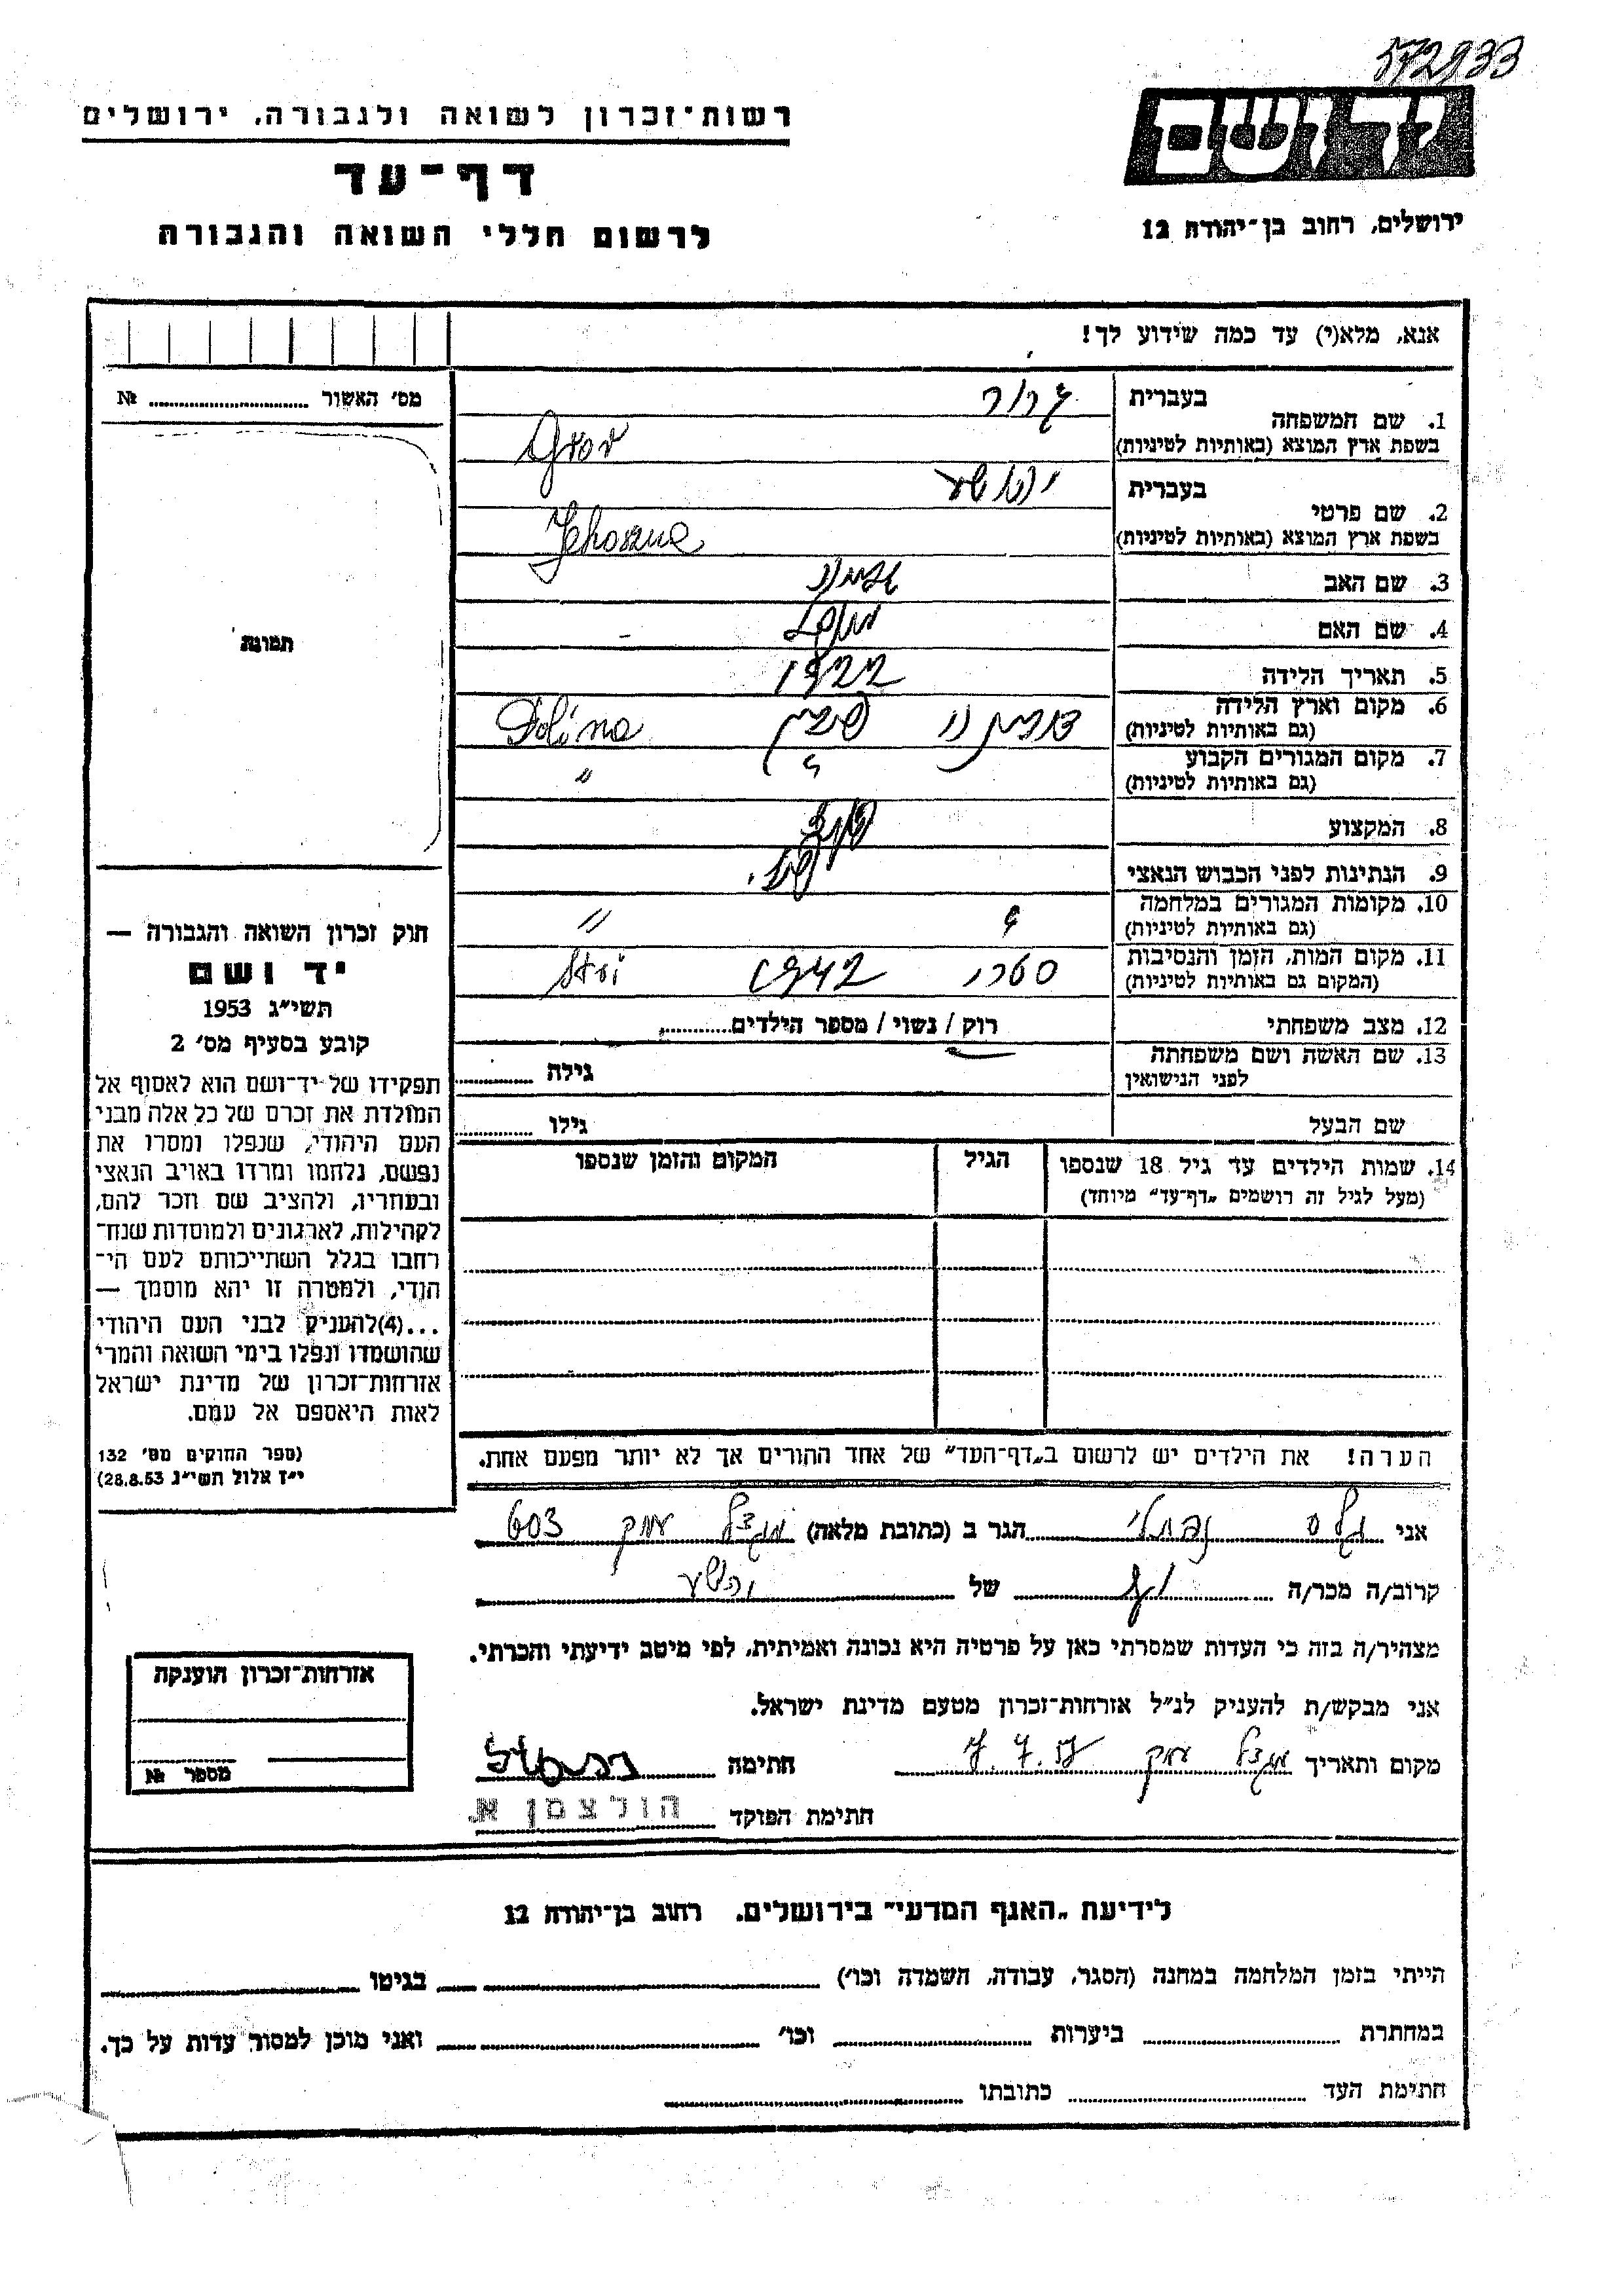 572933
רשות־זכרון לשואה ולגבורה, ירושלים
יד ושם
דף־עד
ירושלים, רחוב בן־יהודה 12
לרשום חללי השואה והגבורה
אנא, מלא(י) עד כמה שידוע לך!
מס' האשור № 
בעברית גרור
1. שם המשפחה
בשפת ארץ המוצא (באותיות לטיניות) Gror
בעברית יהושע
2. שם פרטי
בשפת ארץ המוצא (באותיות לטיניות) Jehoszua
3. שם האב
4. שם האם
5. תאריך הלידה 1922
6. מקום וארץ הלידה
(גם באותיות לטיניות) פולין Dolina
7. מקום המגורים הקבוע
(גם באותיות לטיניות) " "
8. המקצוע
9. הנתינות לפני הכבוש הנאצי
10. מקומות המגורים במלחמה
(גם באותיות לטיניות) " "
11. מקום המות, הזמן והנסיבות
(המקום גם באותיות לטיניות) סטרי 1942 Stri
12. מצב משפחתי רוק / נשוי / מספר הילדים
13. שם האשה ושם משפחתה
לפני הנישואין גילה
שם הבעל גילו
14. שמות הילדים עד גיל 18 שנספו הגיל המקום והזמן שנספו
(מעל לגיל זה רושמים „דף־עד" מיוחד)
הערה! את הילדים יש לרשום ב„דף־העד" של אחד ההורים אך לא יותר מפעם אחת.
תמונה
חוק זכרון השואה והגבורה —
יד ושם
תשי"ג 1953
קובע בסעיף מס' 2
תפקידו של יד־ושם הוא לאסוף אל
המולדת את זכרם של כל אלה מבני
העם היהודי, שנפלו ומסרו את
נפשם, נלחמו ומרדו באויב הנאצי
ובעוזריו, ולהציב שם וזכר להם,
לקהילות, לארגונים ולמוסדות שנח־
רבו בגלל השתייכותם לעם הי־
הודי, ולמטרה זו יהא מוסמך —
...(4)להעניק לבני העם היהודי
שהושמדו ונפלו בימי השואה והמרי
אזרחות־זכרון של מדינת ישראל
לאות היאספם אל עמם.
(ספר החוקים מס' 132
י"ז אלול תשי"ג 28.8.53)
אני נפתלי הגר ב (כתובת מלאה) מגדל עמק 603
קרוב/ה מכר/ה של יהושע
מצהיר/ה בזה כי העדות שמסרתי כאן על פרטיה היא נכונה ואמיתית, לפי מיטב ידיעתי והכרתי.
אני מבקש/ת להעניק לנ"ל אזרחות־זכרון מטעם מדינת ישראל.
מקום ותאריך מגדל עמק 7.7.57 חתימה
חתימת הפוקד הולצמן א.
אזרחות־זכרון הוענקה
מספר №
לידיעת „האגף המדעי" בירושלים, רחוב בן־יהודה 12
הייתי בזמן המלחמה במחנה (הסגר, עבודה, השמדה וכו') בגיטו
במחתרת ביערות וכו' ואני מוכן למסור עדות על כך.
חתימת העד כתובתו